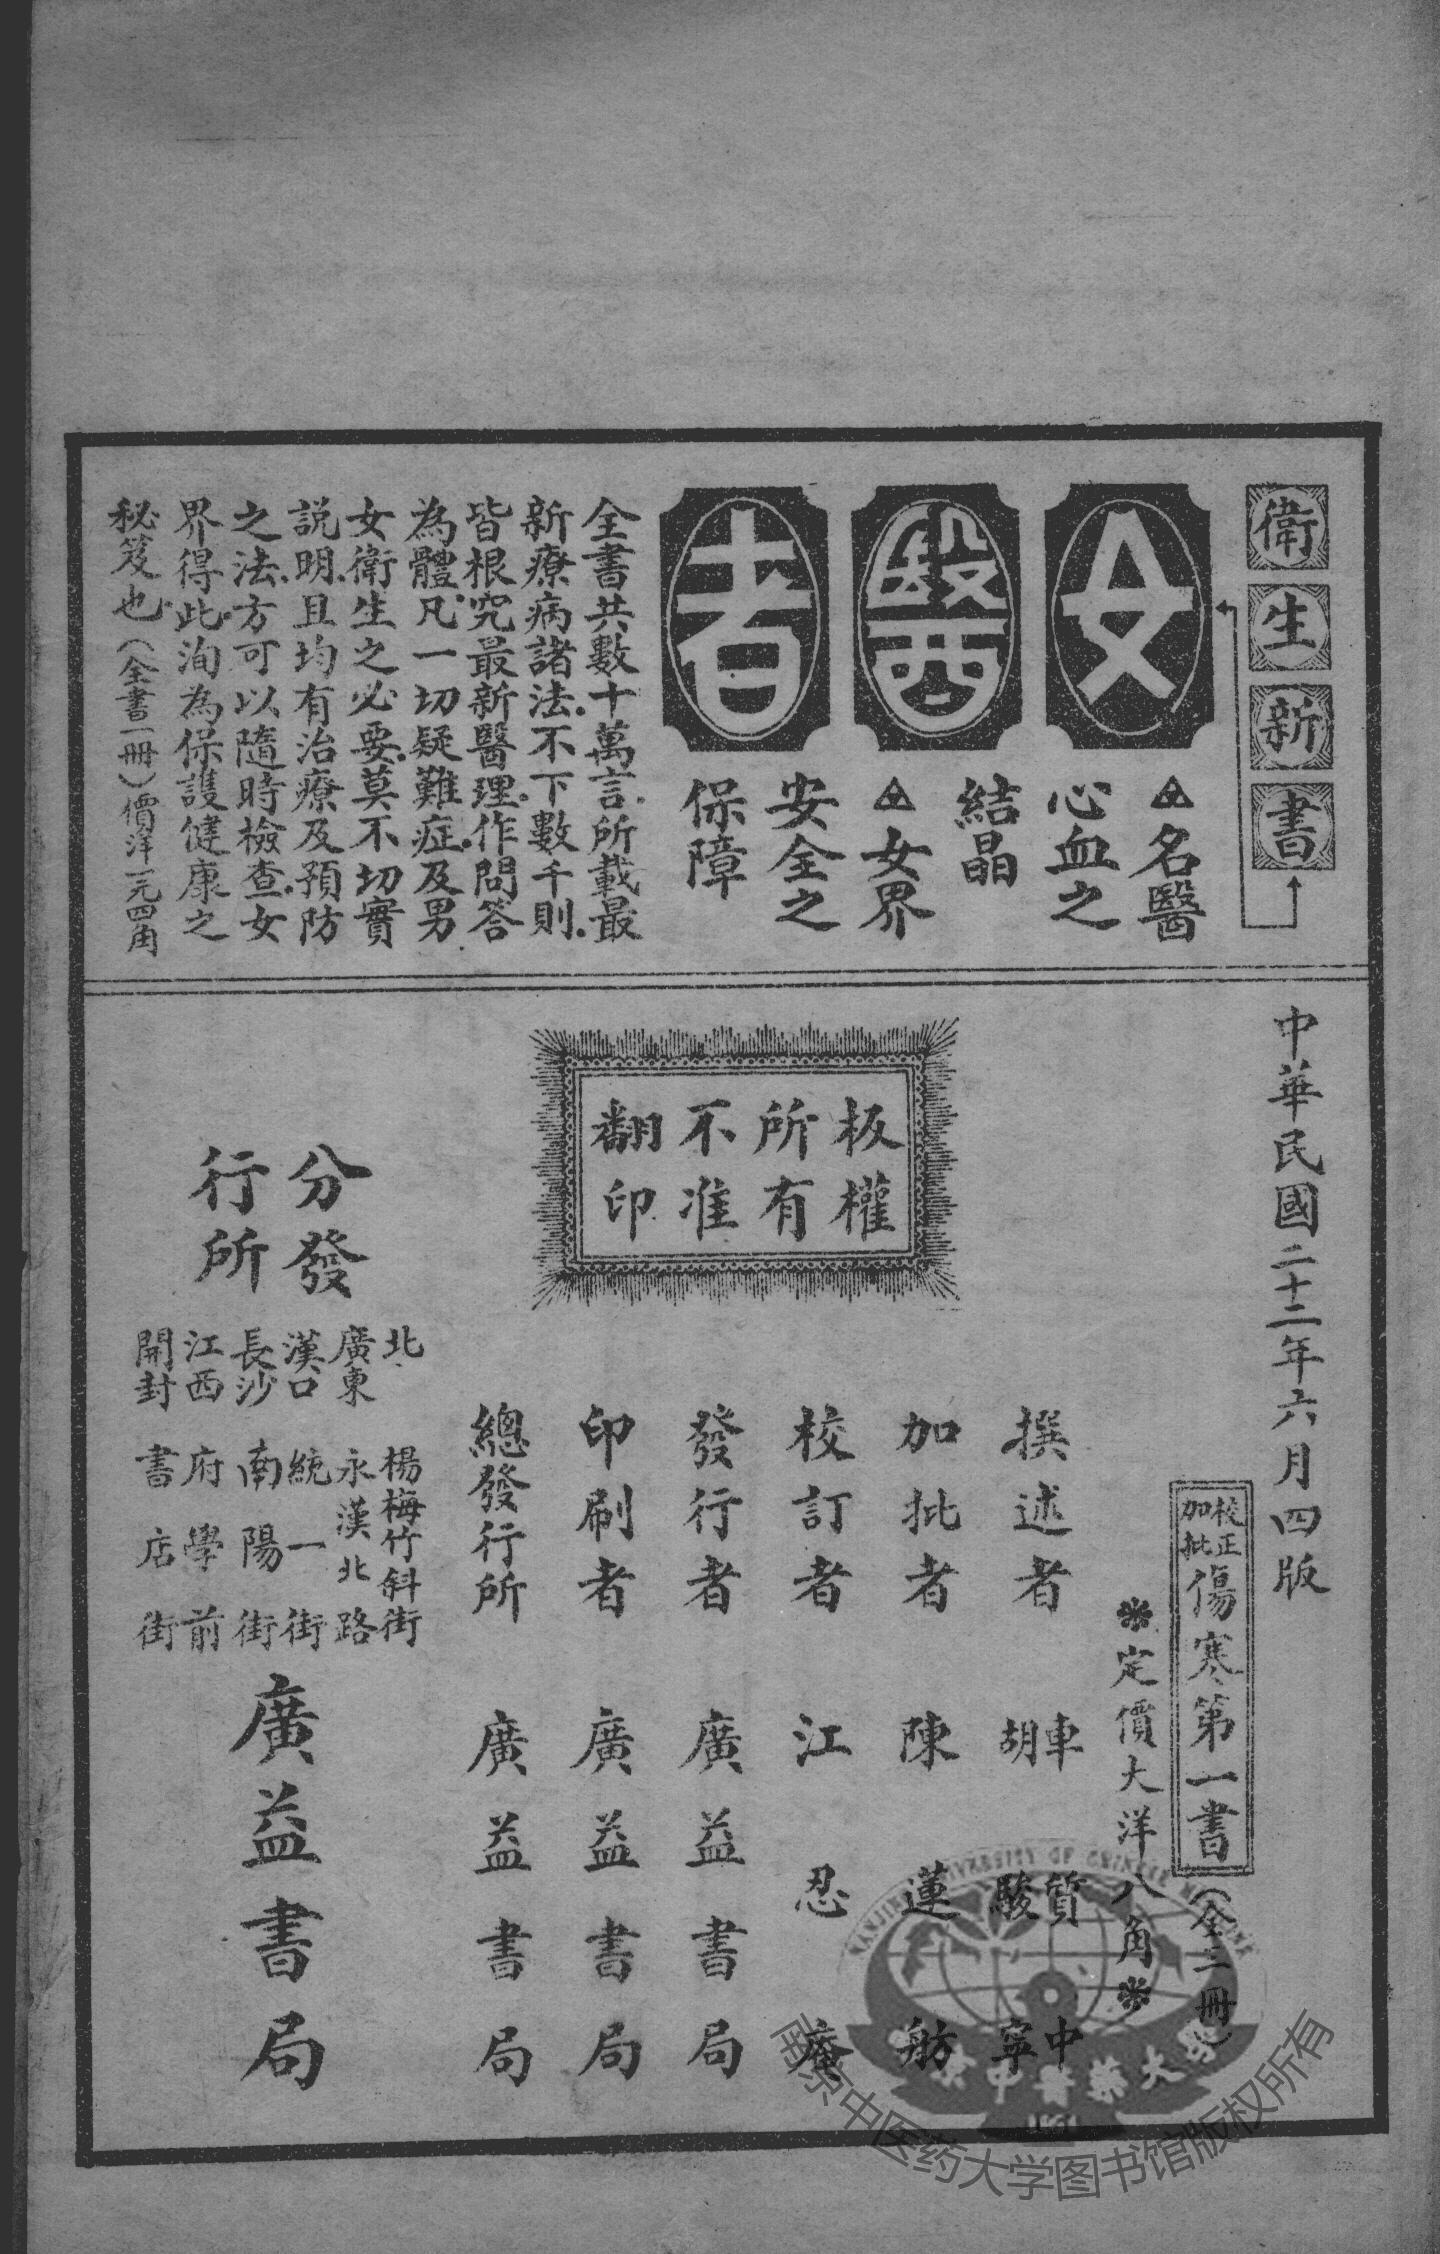 衛生新書
女醫者
名醫
心血之
結晶
女界
安全之
保障
全書共數十萬言所載最
新療病諸法不下數千則
皆根究最新醫理作問答
為體凡一切疑難症及男
女衛生之必要莫不切實
説明且均有治療及預防
之法方可以隨時檢查女
界得此洵為保護健康之
秘笈也（全書一冊）價洋一元四角
中華民國二十二年六月四版
校正加批傷寒第一書（全三冊）
定價大洋八角
板權
所有
不准
翻印
撰述者 車質中 胡駿寧
加批者 陳蓮舫
校訂者 江忍庵
發行者 廣益書局
印刷者 廣益書局
總發行所 廣益書局
分發
行所
北 楊梅竹斜街
廣東 永漢北路
漢口 統一街
長沙 南陽街
江西 府學前
開封 書店街
廣益書局
南京中医药大学图书馆版权所有